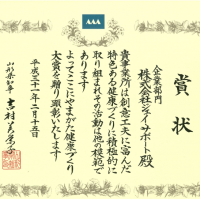 賞状
企業部門
株式会社ジェイ・サポート殿
貴事業所は創意工夫に富んだ
特色ある健康づくりに積極的に
取り組まれその活動は他の模範で
あります
よってここにやまがた健康づくり
大賞を贈り顕彰いたします
平成三十一年二月十五日
山形県知事 吉村美栄子